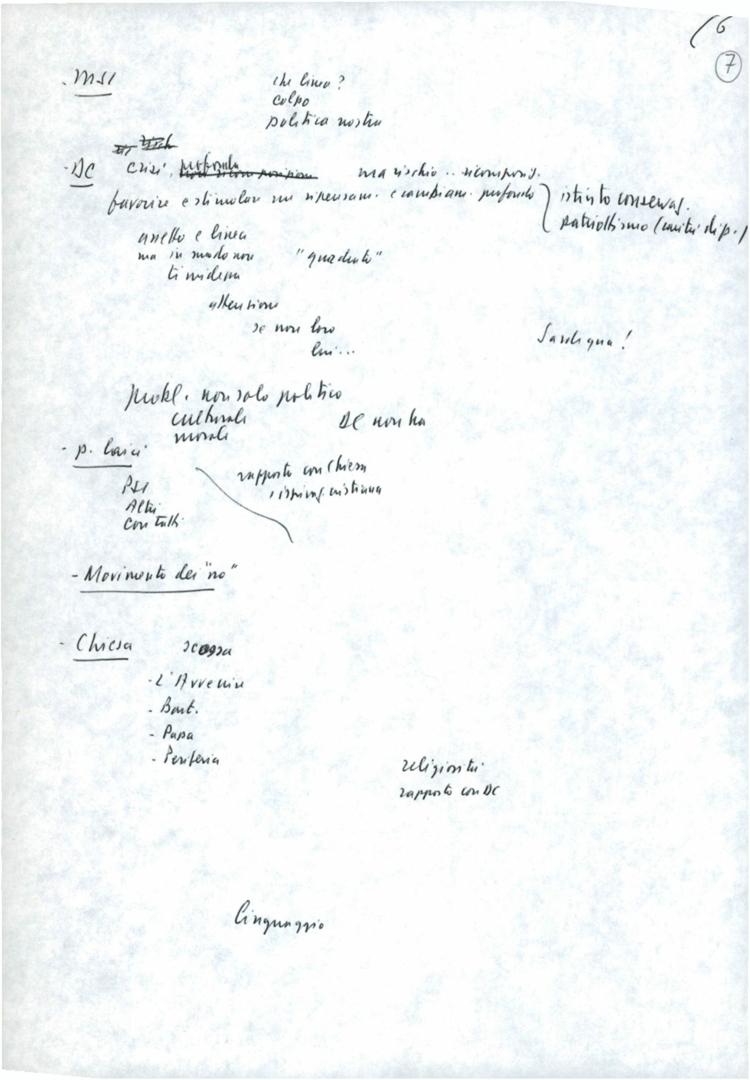 6
7
- MSI che linea?
colpo
politica nostra
- DC crisi, profonda ma rischio .. ricompos.
favorire e stimolare un ripensam. e cambiam. profondo
istinto conservaz.
patriottismo (unità dip.)
assetto e linea
ma in modo non "quadrato"
attenzione
se non loro
lui...
Sardegna!
probl. non solo politico
culturale DC non ha
morale
- p. laici
rapporto con Chiesa
PSI
Altri
Contatti
- Movimento dei "no"
- Chiesa scossa
- L'Avvenire
- Bart.
- Papa
- Periferia
religiosità
rapporto con DC
linguaggio